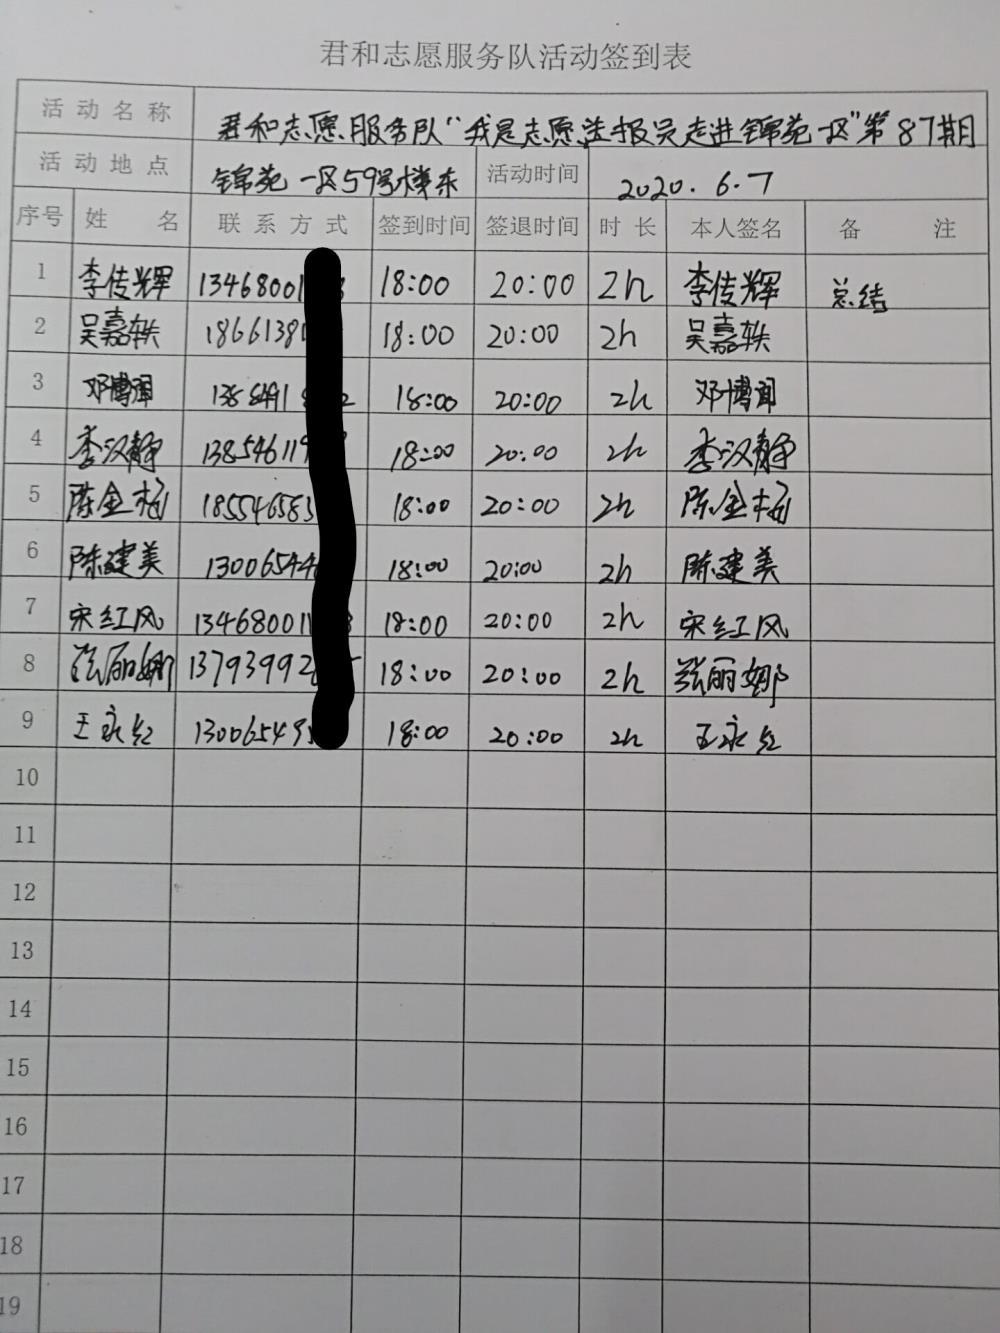 君和志愿服务队活动签到表
活动名称 君和志愿服务队"我是志愿宣报员走进锦苑一区"第87期
活动地点 锦苑一区59号楼东 活动时间 2020.6.7
序号 姓名 联系方式 签到时间 签退时间 时长 本人签名 备注
1 李传辉 13468001 18:00 20:00 2h 李传辉 总结
2 吴嘉轶 1866138 18:00 20:00 2h 吴嘉轶
3 邓博闻 138 8491 18:00 20:00 2h 邓博闻
4 李汉静 138546119 18:00 20:00 2h 李汉静
5 陈金梅 185546583 18:00 20:00 2h 陈金梅
6 陈建美 13006544 18:00 20:00 2h 陈建美
7 宋红风 134680011 18:00 20:00 2h 宋红风
8 张丽娜 137939926 18:00 20:00 2h 张丽娜
9 王永红 130065495 18:00 20:00 2h 王永红
10
11
12
13
14
15
16
17
18
19